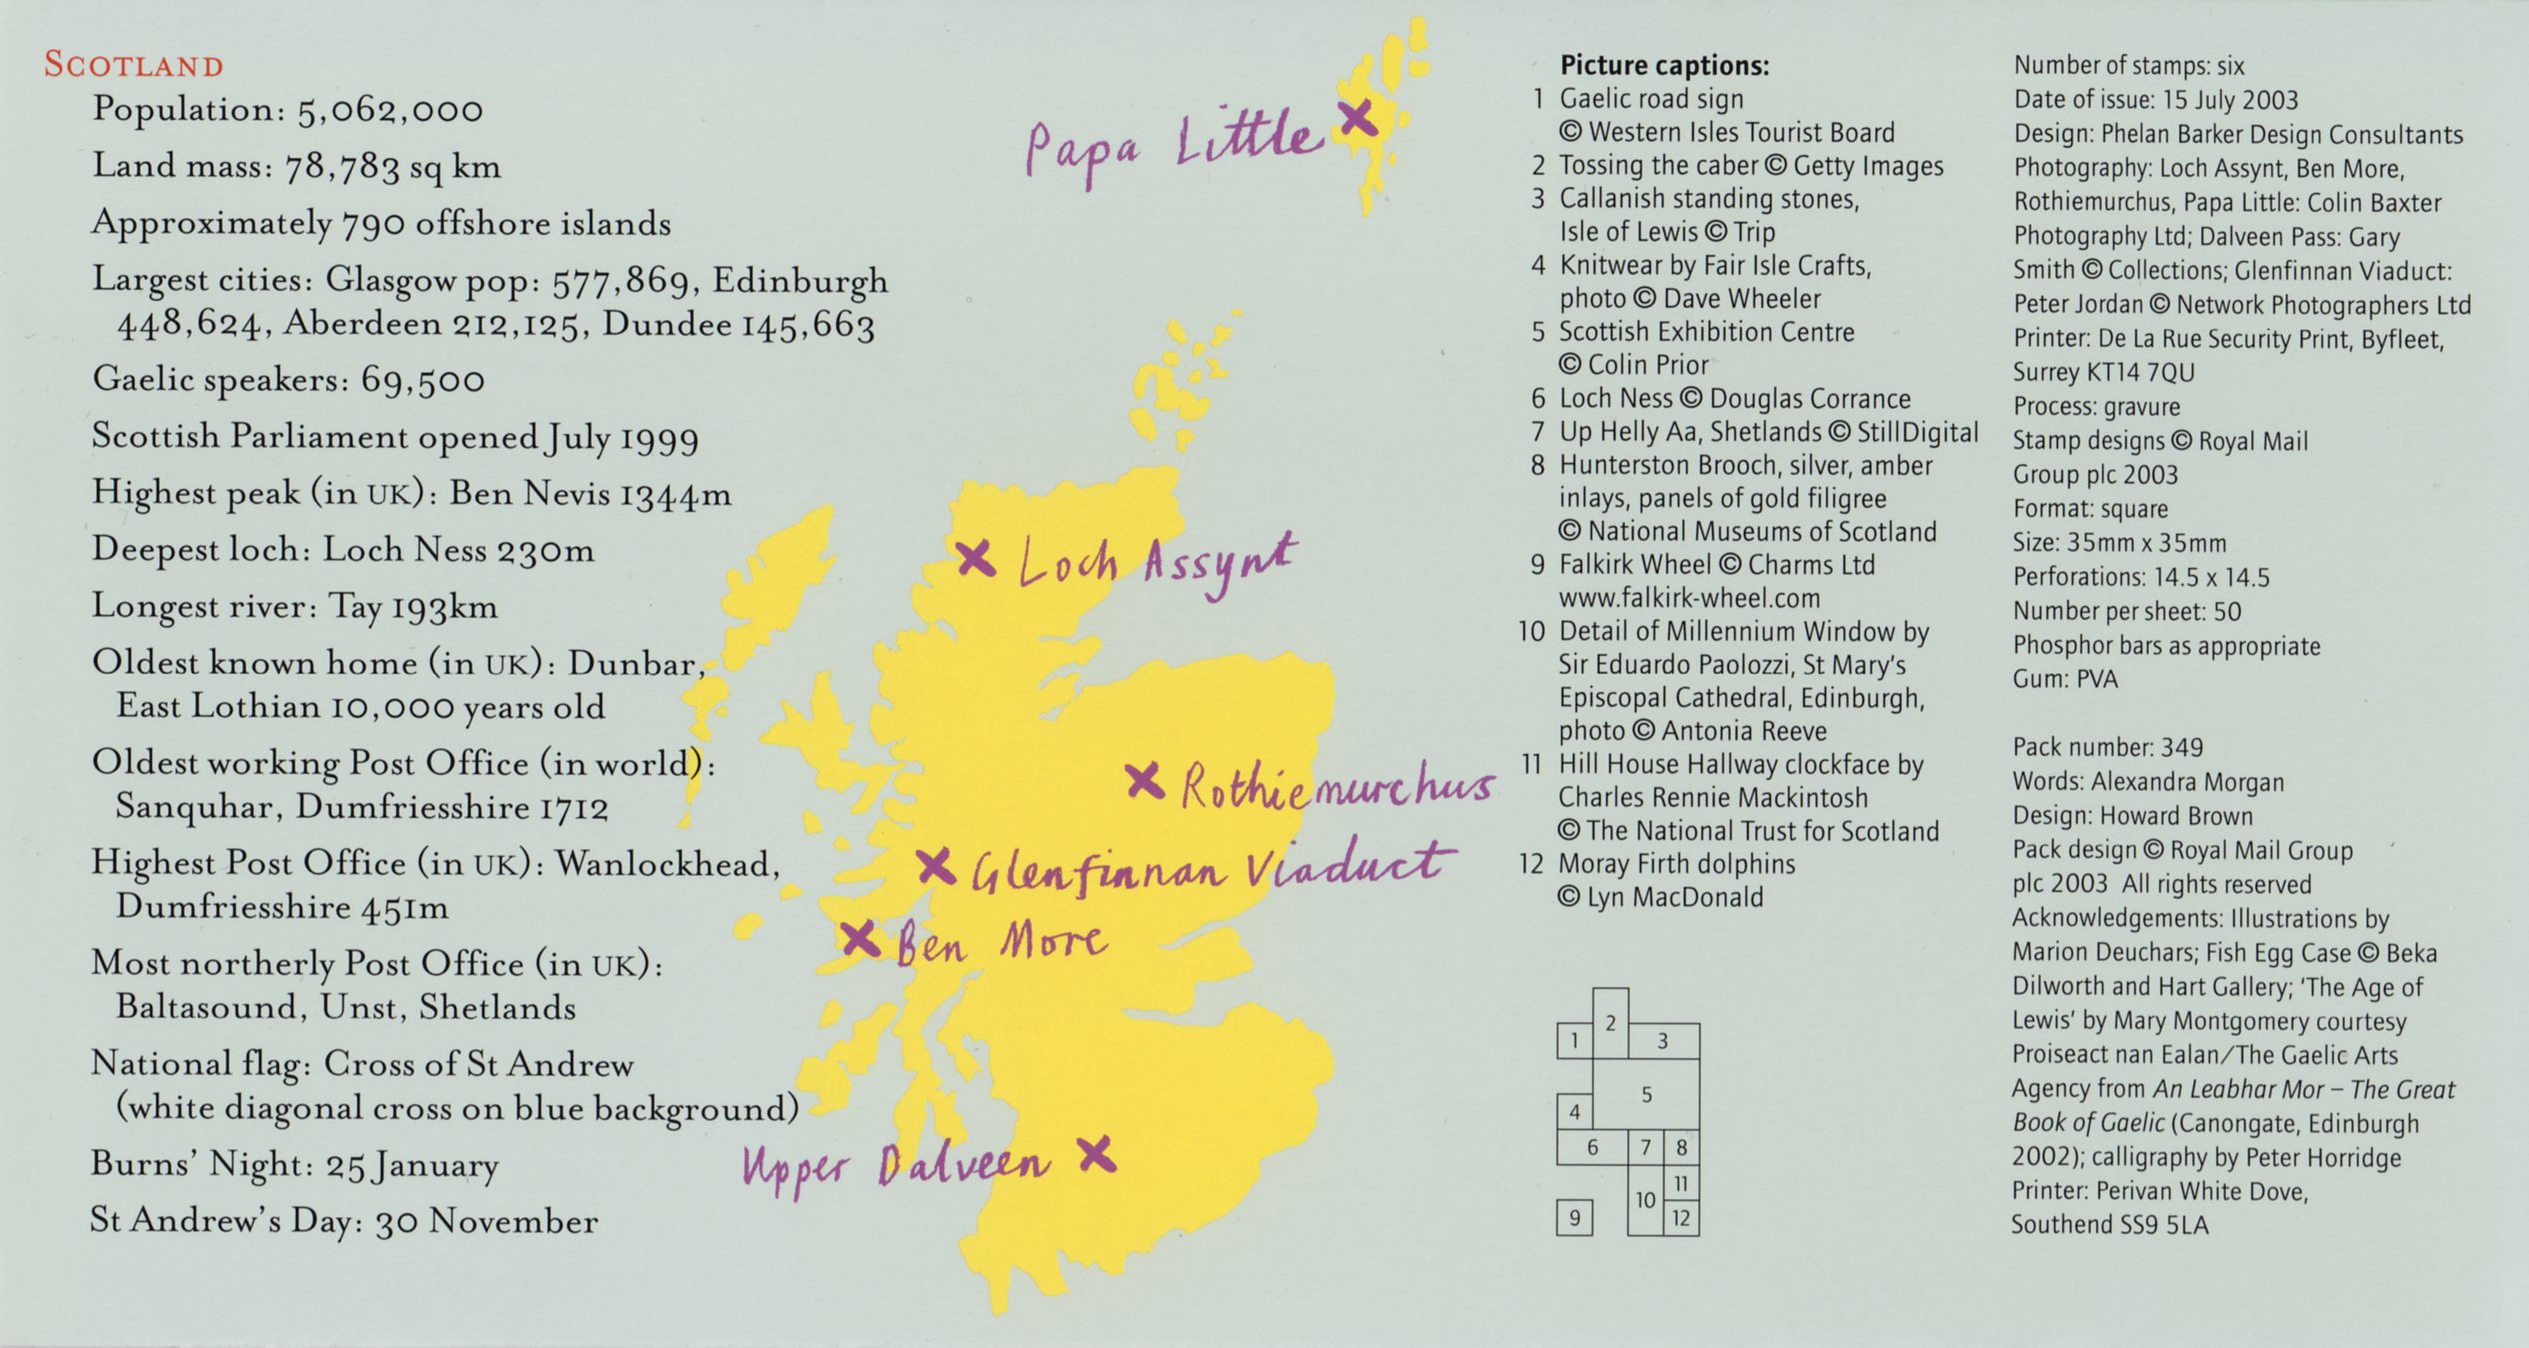 SCOTLAND
Population: 5,062,000
Land mass: 78,783 sq km
Approximately 790 offshore islands
Largest cities: Glasgow pop: 577,869, Edinburgh
448,624, Aberdeen 212,125, Dundee 145,663
Gaelic speakers: 69,500
Scottish Parliament opened July 1999
Highest peak (in UK): Ben Nevis 1344m
Deepest loch: Loch Ness 230m
Longest river: Tay 193km
Oldest known home (in UK): Dunbar,
East Lothian 10,000 years old
Oldest working Post Office (in world):
Sanquhar, Dumfriesshire 1712
Highest Post Office (in UK): Wanlockhead,
Dumfriesshire 451m
Most northerly Post Office (in UK):
Baltasound, Unst, Shetlands
National flag: Cross of St Andrew
(white diagonal cross on blue background)
Burns' Night: 25 January
St Andrew's Day: 30 November
Papa Little
Loch Assynt
Rothiemurchus
Glenfinnan Viaduct
Ben More
Upper Dalveen
Picture captions:
1 Gaelic road sign
© Western Isles Tourist Board
2 Tossing the caber © Getty Images
3 Callanish standing stones,
Isle of Lewis © Trip
4 Knitwear by Fair Isle Crafts,
photo © Dave Wheeler
5 Scottish Exhibition Centre
© Colin Prior
6 Loch Ness © Douglas Corrance
7 Up Helly Aa, Shetlands © StillDigital
8 Hunterston Brooch, silver, amber
inlays, panels of gold filigree
© National Museums of Scotland
9 Falkirk Wheel © Charms Ltd
www.falkirk-wheel.com
10 Detail of Millennium Window by
Sir Eduardo Paolozzi, St Mary's
Episcopal Cathedral, Edinburgh,
photo © Antonia Reeve
11 Hill House Hallway clockface by
Charles Rennie Mackintosh
© The National Trust for Scotland
12 Moray Firth dolphins
© Lyn MacDonald
2
1 3
5
4
6 7 8
11
10
9 12
Number of stamps: six
Date of issue: 15 July 2003
Design: Phelan Barker Design Consultants
Photography: Loch Assynt, Ben More,
Rothiemurchus, Papa Little: Colin Baxter
Photography Ltd; Dalveen Pass: Gary
Smith © Collections; Glenfinnan Viaduct:
Peter Jordan © Network Photographers Ltd
Printer: De La Rue Security Print, Byfleet,
Surrey KT14 7QU
Process: gravure
Stamp designs © Royal Mail
Group plc 2003
Format: square
Size: 35mm x 35mm
Perforations: 14.5 x 14.5
Number per sheet: 50
Phosphor bars as appropriate
Gum: PVA
Pack number: 349
Words: Alexandra Morgan
Design: Howard Brown
Pack design © Royal Mail Group
plc 2003 All rights reserved
Acknowledgements: Illustrations by
Marion Deuchars; Fish Egg Case © Beka
Dilworth and Hart Gallery; 'The Age of
Lewis' by Mary Montgomery courtesy
Proiseact nan Ealan/The Gaelic Arts
Agency from An Leabhar Mor – The Great
Book of Gaelic (Canongate, Edinburgh
2002); calligraphy by Peter Horridge
Printer: Perivan White Dove,
Southend SS9 5LA